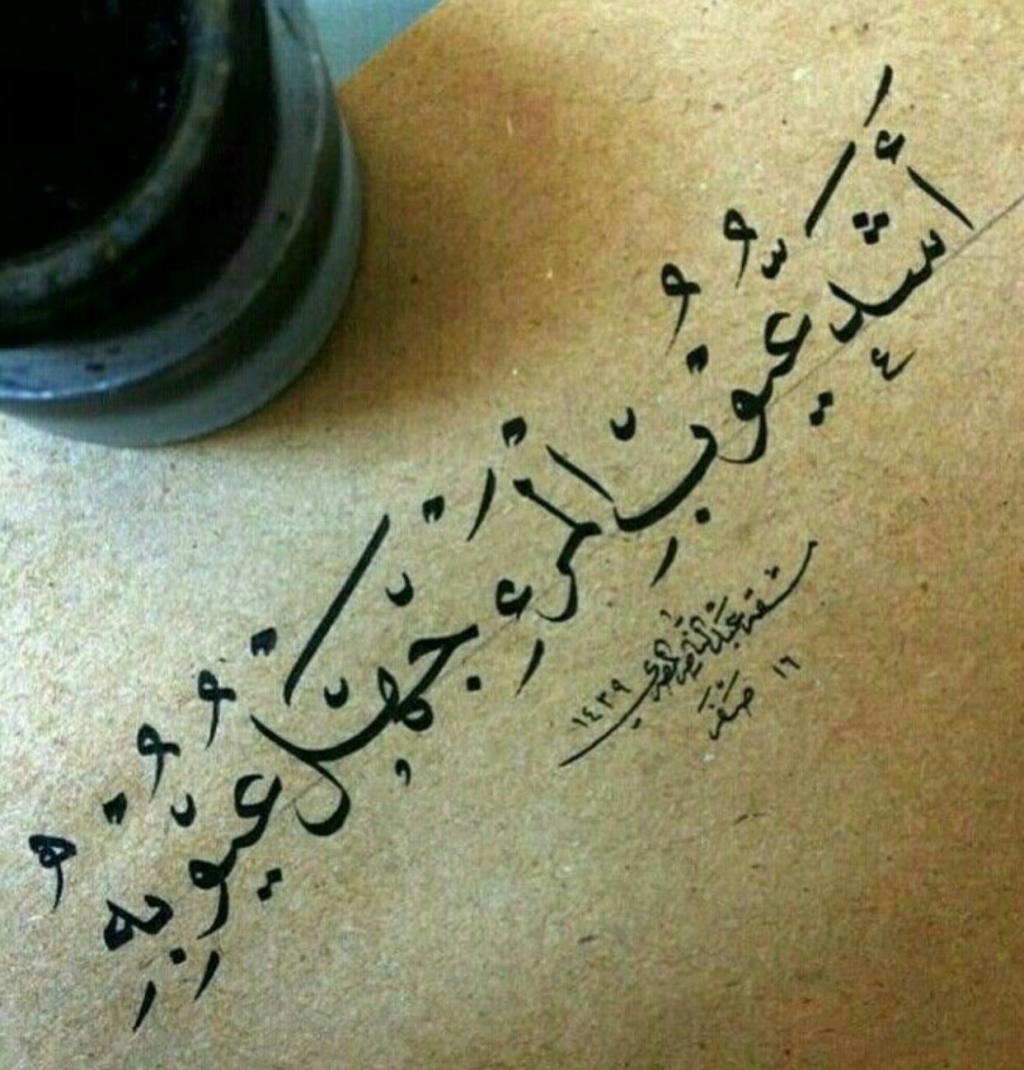 أَشَدُّ عُيُوبِ الْمَرْءِ جَهْلُ عُيُوبِهِ
١٤٣٩
١٦ صَفَر